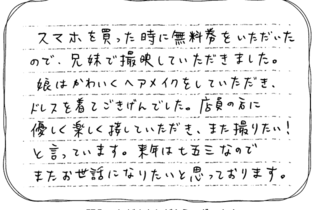 スマホを買った時に無料券をいただいた
ので、兄妹で撮映していただきました。
娘はかわいくヘアメイクをしていただき、
ドレスを着てごきげんでした。店員の方に
優しく楽しく接していただき、また撮りたい！
と言っています。来年は七五三なので
またお世話になりたいと思っております。